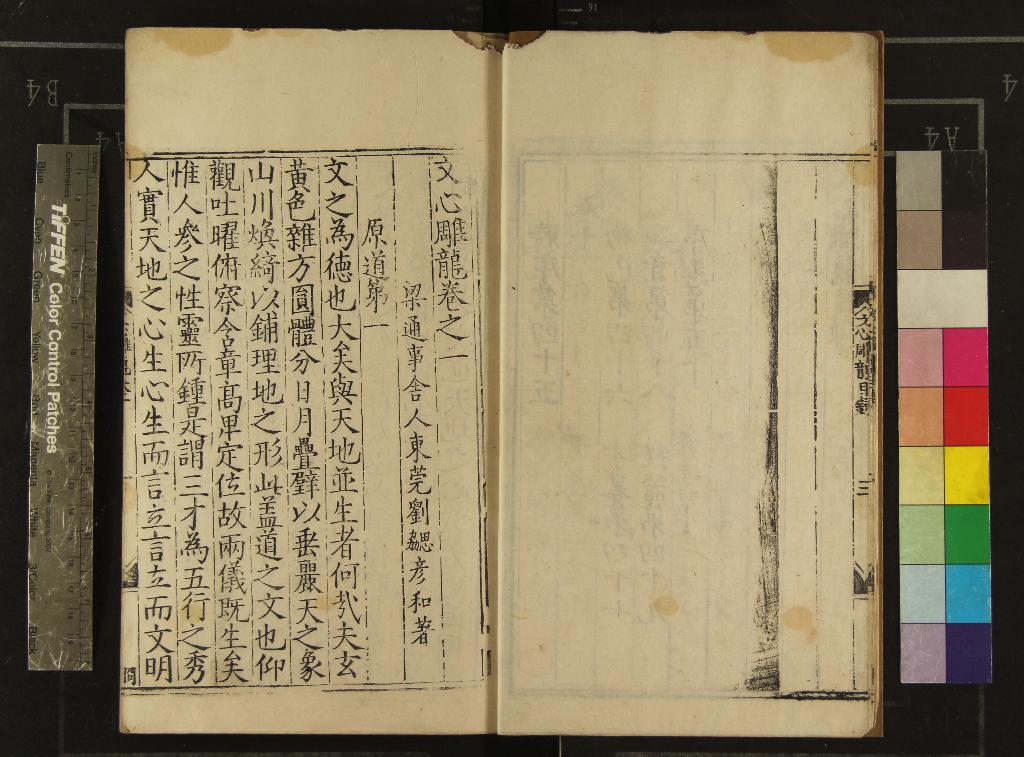 文心雕龍卷之一
梁通事舍人東莞劉勰彦和著
原道第一
文之為徳也大矣與天地並生者何㢤夫玄
黃色雜方圓體分日月疊璧以垂麗天之象
山川煥綺以鋪理地之形此盖道之文也仰
觀吐曜俯察含章高卑定位故兩儀既生矣
惟人叅之性靈所鍾是謂三才為五行之秀
人實天地之心生心生而言立言立而文明
文心雕龍目錄
三
TIFFEN Color Control Patches
Centimetres
Blue
Cyan
Green
Yellow
Red
Magenta
White
3/Color
Black
B4
A4
A4